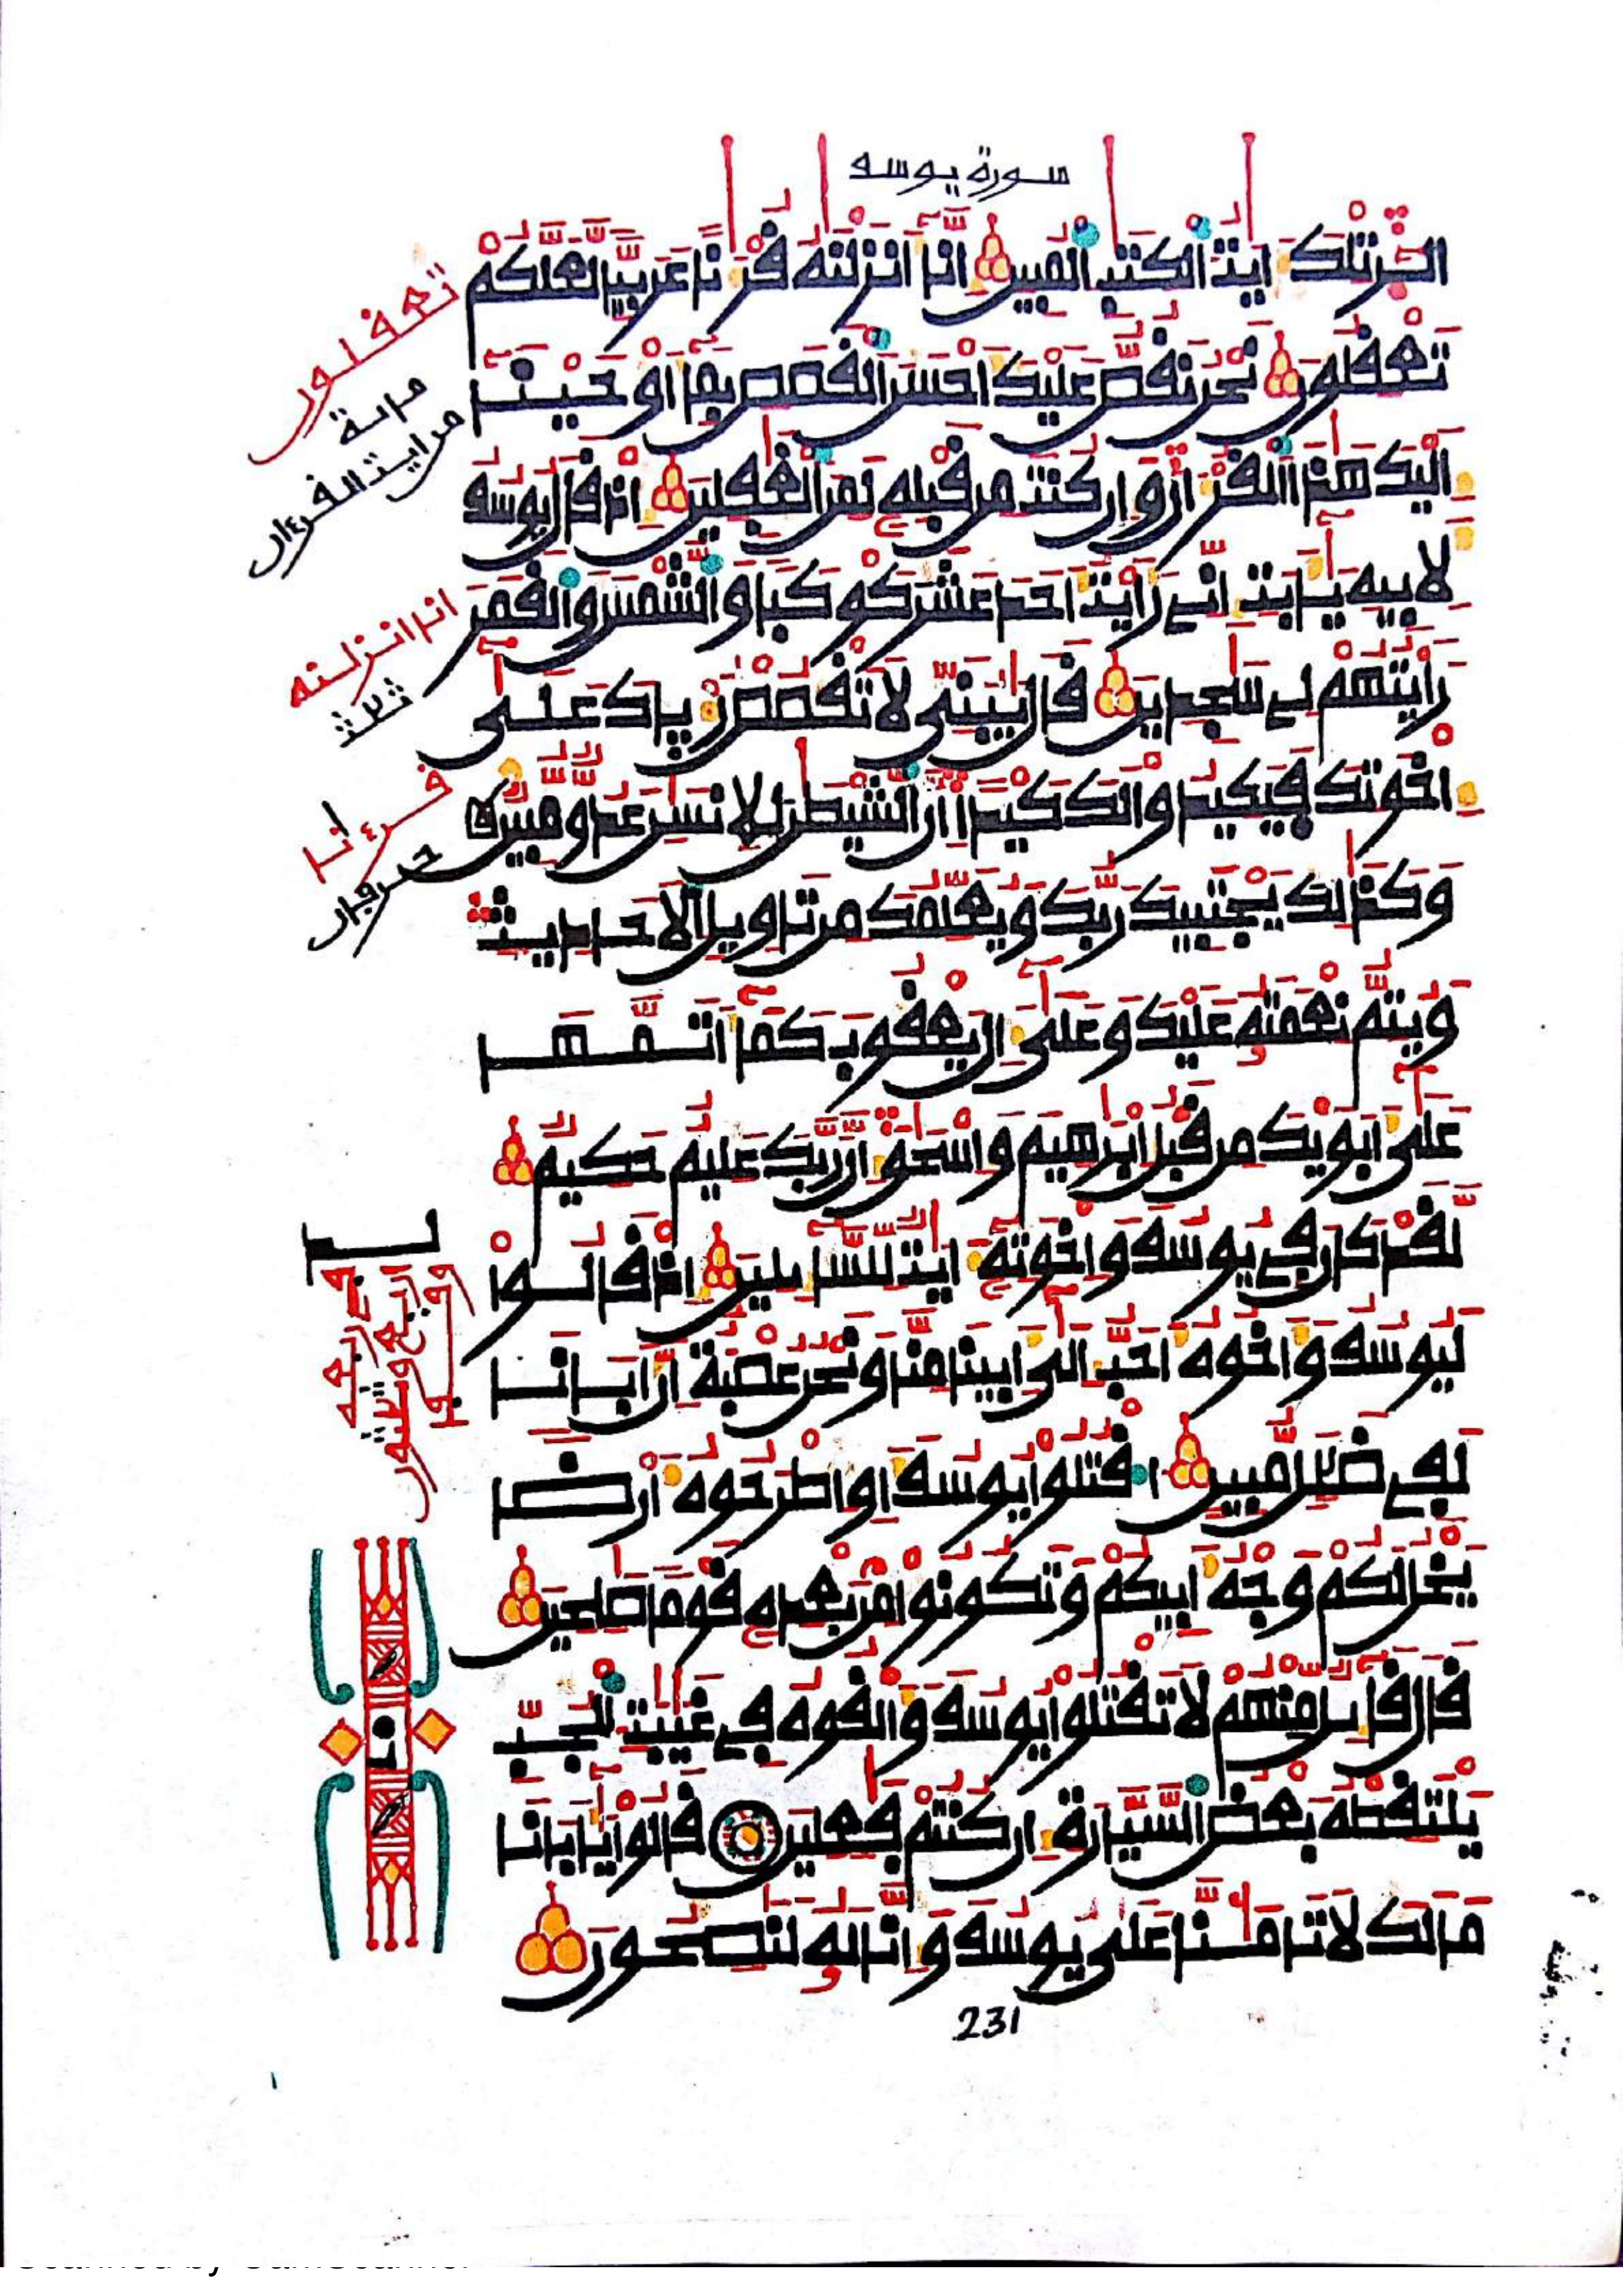 سورة يوسف
الٓر تلك ايت الكتب المبين انا انزلنه قرءنا عربيا لعلكم
تعقلون نحن نقص عليك احسن القصص بما اوحينا
اليك هذا القرءان وان كنت من قبله لمن الغفلين اذ قال يوسف
لابيه يابت اني رايت احد عشر كوكبا والشمس والقمر
رايتهم لي سجدين قال يبني لا تقصص رءياك على
اخوتك فيكيدوا لك كيدا ان الشيطن للانسن عدو مبين
وكذلك يجتبيك ربك ويعلمك من تاويل الاحاديث
ويتم نعمته عليك وعلى ال يعقوب كما اتمها
على ابويك من قبل ابرهيم واسحق ان ربك عليم حكيم
لقد كان في يوسف واخوته ايت للسايلين اذ قالوا
ليوسف واخوه احب الى ابينا منا ونحن عصبة ان ابانا
لفي ضلل مبين اقتلوا يوسف او اطرحوه ارضا
يخل لكم وجه ابيكم وتكونوا من بعده قوما صلحين
قال قايل منهم لا تقتلوا يوسف والقوه في غيبت الجب
يلتقطه بعض السيارة ان كنتم فعلين قالوا يابانا
ما لك لا تامنا على يوسف وانا له لنصحون
231
تعقلون
من ايت القرءان
انا انزلنه
ثلث
قرءنا
حرفان